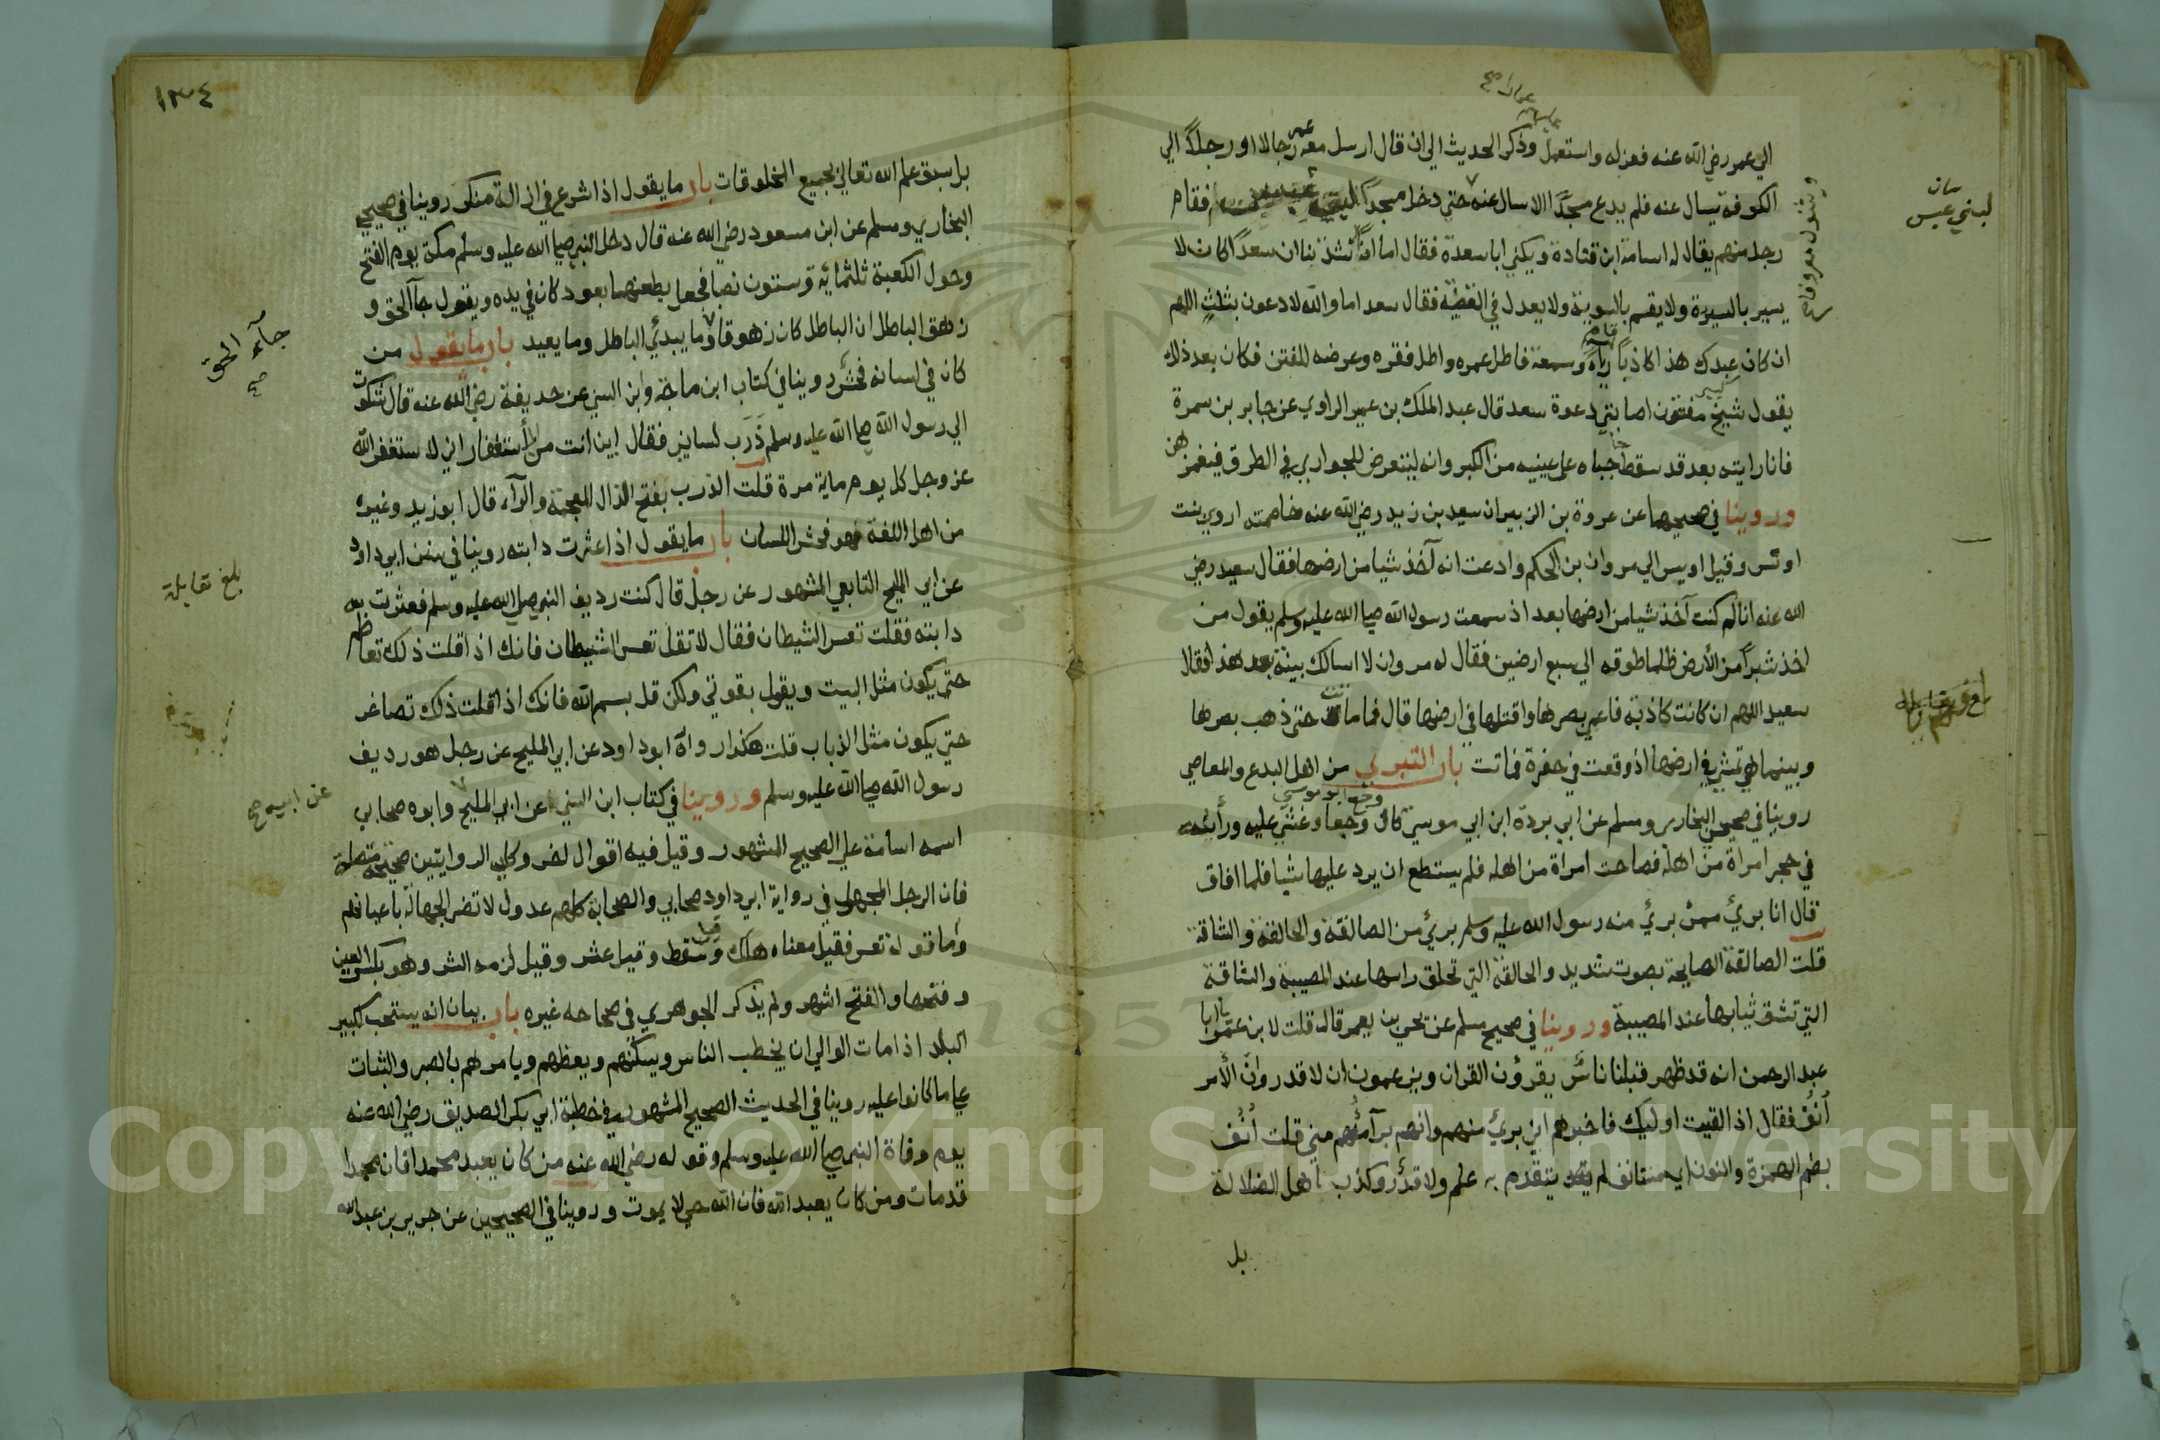 الي عمر رضي الله عنه فعزله واستعمل وذكر الحديث الي ان قال ارسل معه عمر رجالا او رجلا الي
الكوفة يسال عنه فلم يدع مسجدا الا سال عنه حتي دخل مسجدا فقام
رجل منهم يقال له اسامة ابن قتادة ويكني ابا سعدة فقال اما اذ نشدتنا ان سعدا كان لا
يسير بالسيرة ولا يقسم بالسوية ولا يعدل في القضية فقال سعد اما والله لادعون بثلث اللهم
ان كان عبدك هذا كاذبا قام رياء وسمعة فاطل عمره واطل فقره وعرضه للفتن فكان بعد ذلك
يقول شيخ كبير مفتون اصابتني دعوة سعد قال عبد الملك بن عمير الراوي عن جابر بن سمرة
فانا رايته بعد قد سقط حاجباه علي عينيه من الكبر وانه ليتعرض للجواري في الطرق فيغمزهن
وروينا في صحيحهما عن عروة بن الزبير ان سعيد بن زيد رضي الله عنه خاصمته اروي بنت
اوس وقيل اويس الي مروان بن الحكم وادعت انه آخذ شيا من ارضها فقال سعيد رضي
الله عنه انا لم كنت آخذ شيا من ارضها بعد اذ سمعت رسول الله صلي الله عليه وسلم يقول من
اخذ شبرا من الأرض ظلما طوقه الي سبع ارضين فقال له مروان لا اسالك بينة بعد هذا فقال
سعيد اللهم ان كانت كاذبة فاعم بصرها واقتلها في ارضها قال فما ماتت حتي ذهب بصرها
وبينما هي تمشي في ارضها اذ وقعت في حفرة فماتت باب التبري من اهل البدع والمعاصي
روينا في صحيحي البخاري ومسلم عن ابي بردة ابن ابي موسي قال وجع ابو موسي وجعا وغشي عليه وراسه
في حجر امراة من اهله فصاحت امراة من اهله فلم يستطع ان يرد عليها شيا فلما افاق
قال انا بريء ممن بريء منه رسول الله عليه وسلم بريء من الصالقة والحالقة والشاقة
قلت الصالقة الصايحة بصوت شديد والحالقة التي تحلق راسها عند المصيبة والشاقة
التي تشق ثيابها عند المصيبة وروينا في صحيح مسلم عن يحي بن يعمر قال قلت لابن عمر يا ابا
عبد الرحمن انه قد ظهر قبلنا ناس يقرؤن القران ويزعمون ان لا قدر وان الأمر
أنف فقال اذا لقيت اوليك فاخبرهم اني بريء منهم وانهم برآء مني قلت أنف
بضم الهمزة والنون اي مستانف لم يتقدم به علم ولا قدر وكذب اهل الضلالة
بل
لبني عبس
ويثنون معروفا
١٣٤
بل سبق علم الله تعالي بجميع المخلوقات باب ما يقول اذا شرع في ازالة منكر روينا في صحيحي
البخاري ومسلم عن ابن مسعود رضي الله عنه قال دخل النبي صلي الله عليه وسلم مكة يوم الفتح
وحول الكعبة ثلثمائة وستون نصبا فجعل يطعنها بعود كان في يده ويقول جآ الحق و
زهق الباطل ان الباطل كان زهوقا وما يبدئ الباطل وما يعيد باب ما يقول من
كان في لسانه فحش روينا في كتاب ابن ماجة وابن السني عن حذيفة رضي الله عنه قال شكوت
الي رسول الله صلي الله عليه وسلم ذرب لساني فقال اين انت من الأستغفار اني لا ستغفر الله
عز وجل كل يوم ماية مرة قلت الذرب بفتح الذال المعجمة والرآء قال ابو زيد وغيره
من اهل اللغة هو فحش اللسان باب ما يقول اذا عثرت دابته روينا في سنن ابي داود
عن ابي المليح التابعي المشهور عن رجل قال كنت رديف النبي صلي الله عليه وسلم فعثرت به
دابته فقلت تعس الشيطان فقال لا تقل تعس الشيطان فانك اذا قلت ذلك تعاظم
حتي يكون مثل البيت ويقول بقوتي ولكن قل بسم الله فانك اذا قلت ذلك تصاغر
حتي يكون مثل الذباب قلت هكذا رواه ابو داود عن ابي المليح عن رجل هو رديف
رسول الله صلي الله عليه وسلم وروينا في كتاب ابن السني عن ابي المليح وابوه صحابي
اسمه اسامة علي الصحيح المشهور وقيل فيه اقوال اخر وكلي الروايتين صحيحة متصلة
فان الرجل المجهول في رواية ابي داود صحابي والصحابة كلهم عدول لا تضر الجهالة باعيانهم
وأما قوله تعس فقيل معناه هلك وقيل سقط وقيل عثر وقيل لزمه الشر وهو بكسر العين
وفتحها والفتح اشهر ولم يذكر الجوهري في صحاحه غيره باب بيان انه يستحب لكبير
البلد اذا مات الوالي ان يخطب الناس ويسكنهم ويعظهم ويامرهم بالصبر والثبات
علي ما كانوا عليه روينا في الحديث الصحيح المشهور في خطبة ابي بكر الصديق رضي الله عنه
يوم وفاة النبي صلي الله عليه وسلم وقوله رضي الله عنه من كان يعبد محمدا فان محمدا
قد مات ومن كان يعبد الله فان الله حي لا يموت وروينا في الصحيحين عن جرير بن عبد الله
جآء الحق
صح
بلغ مقابلة
عن ابيه صح
Copyright © King Saud University
1957